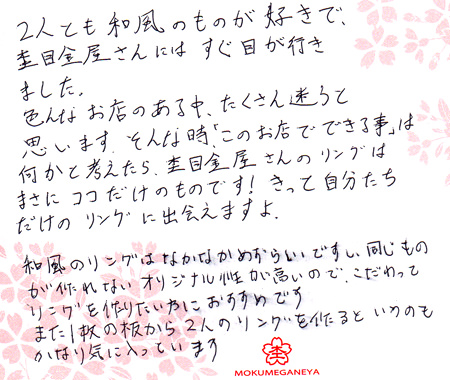 2人とも和風のものが好きで、
杢目金屋さんには すぐ目が行き
ました。
色んなお店のある中、たくさん迷うと
思います。そんな時「このお店でできる事」は
何かと考えたら、杢目金屋さんのリングは
まさにココだけのものです！きっと自分たち
だけの リングに出会えますよ。
和風のリングはなかなかめずらしいですし、同じもの
が作れない オリジナル性が高いので、こだわって
リングを作りたい方に おすすめです
また1枚の板から 2人のリングを作ると いうのも
かなり気に入っています
MOKUMEGANEYA